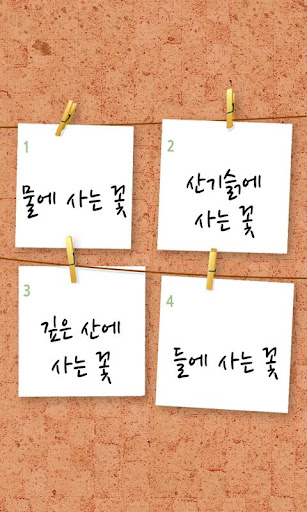 1
물에 사는 꽃
2
산기슭에
사는 꽃
3
깊은 산에
사는 꽃
4
들에 사는 꽃